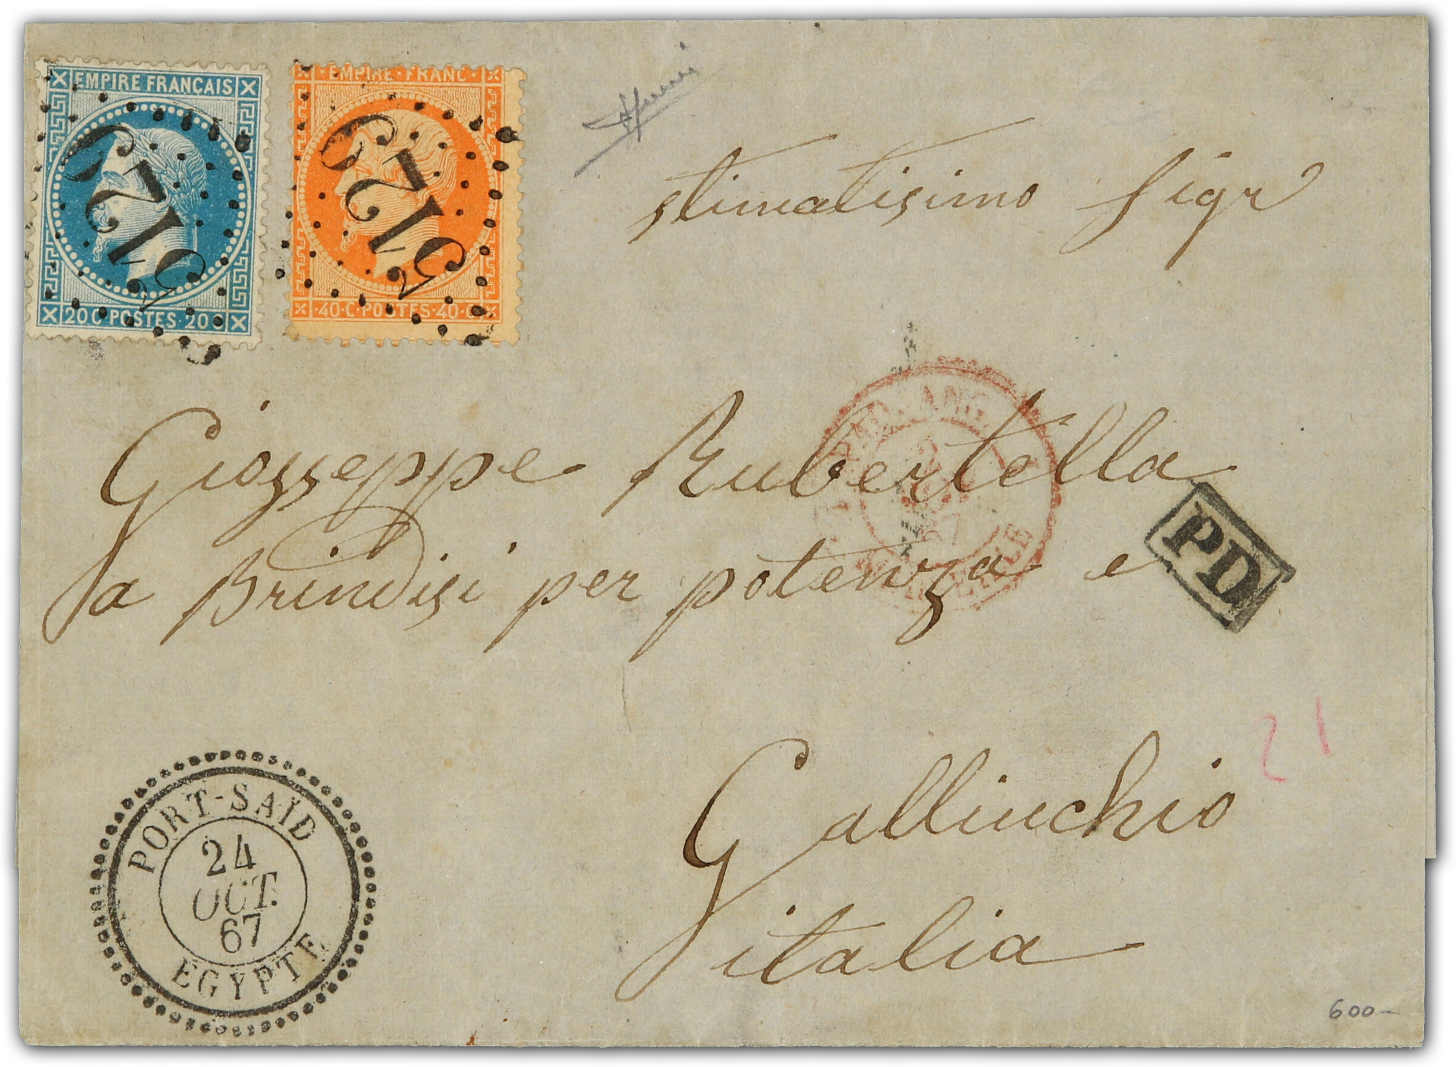 EMPIRE FRANÇAIS
5129
20 C POSTES 20
EMPIRE FRANC
5129
40 C POSTES 40 C
stimatisimo Sigr
Giuzzeppe Rubertella
a Brindisi per potenza e
Gallinchio
italia
PD
67
21
PORT-SAÏD
24
OCT.
67
EGYPTE
600-